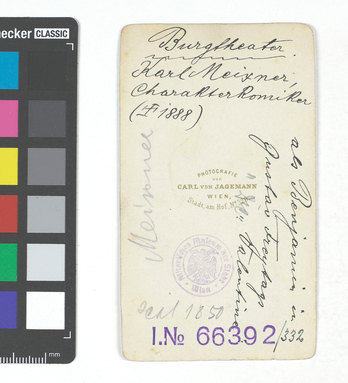 ecker CLASSIC
mm
Burgtheater.
Karl Meixner,
Charakterkomiker
(† 1888)
als Benjamin in
Gustav Freytags
"Die Valentine".
Meixner
PHOTOGRAFIE
VON
CARL VON JAGEMANN
WIEN,
Stadt, am Hof, N°
Wien
1850
I.№ 66392/332